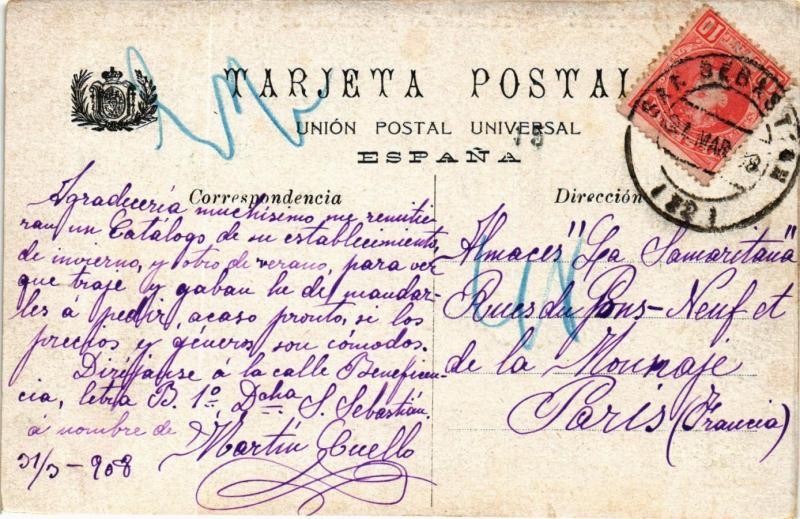 TARJETA POSTAL
UNIÓN POSTAL UNIVERSAL
15
ESPAÑA
Correspondencia
Agradecería muchísimo me remitie-
ran un Catálogo de su establecimiento,
de invierno, y otro de verano, para ver
que traje y gaban he de mandar-
les á pedir, acaso pronto, si los
precios y géneros son cómodos.
Diríjanse á la calle Beneficen-
cia, letra B. 1º Dcha S. Sebastián.
á nombre de Martín Cuello
31/3-908
Dirección
Almaces "La Samaritana"
Rues du Pons-Neuf et
de la Monnaje
Paris (Francia)
10
SAN SEBASTIAN
MAR